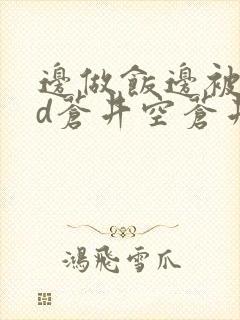 邊做飯邊被
d蒼井空蒼井
鴻飛雪爪